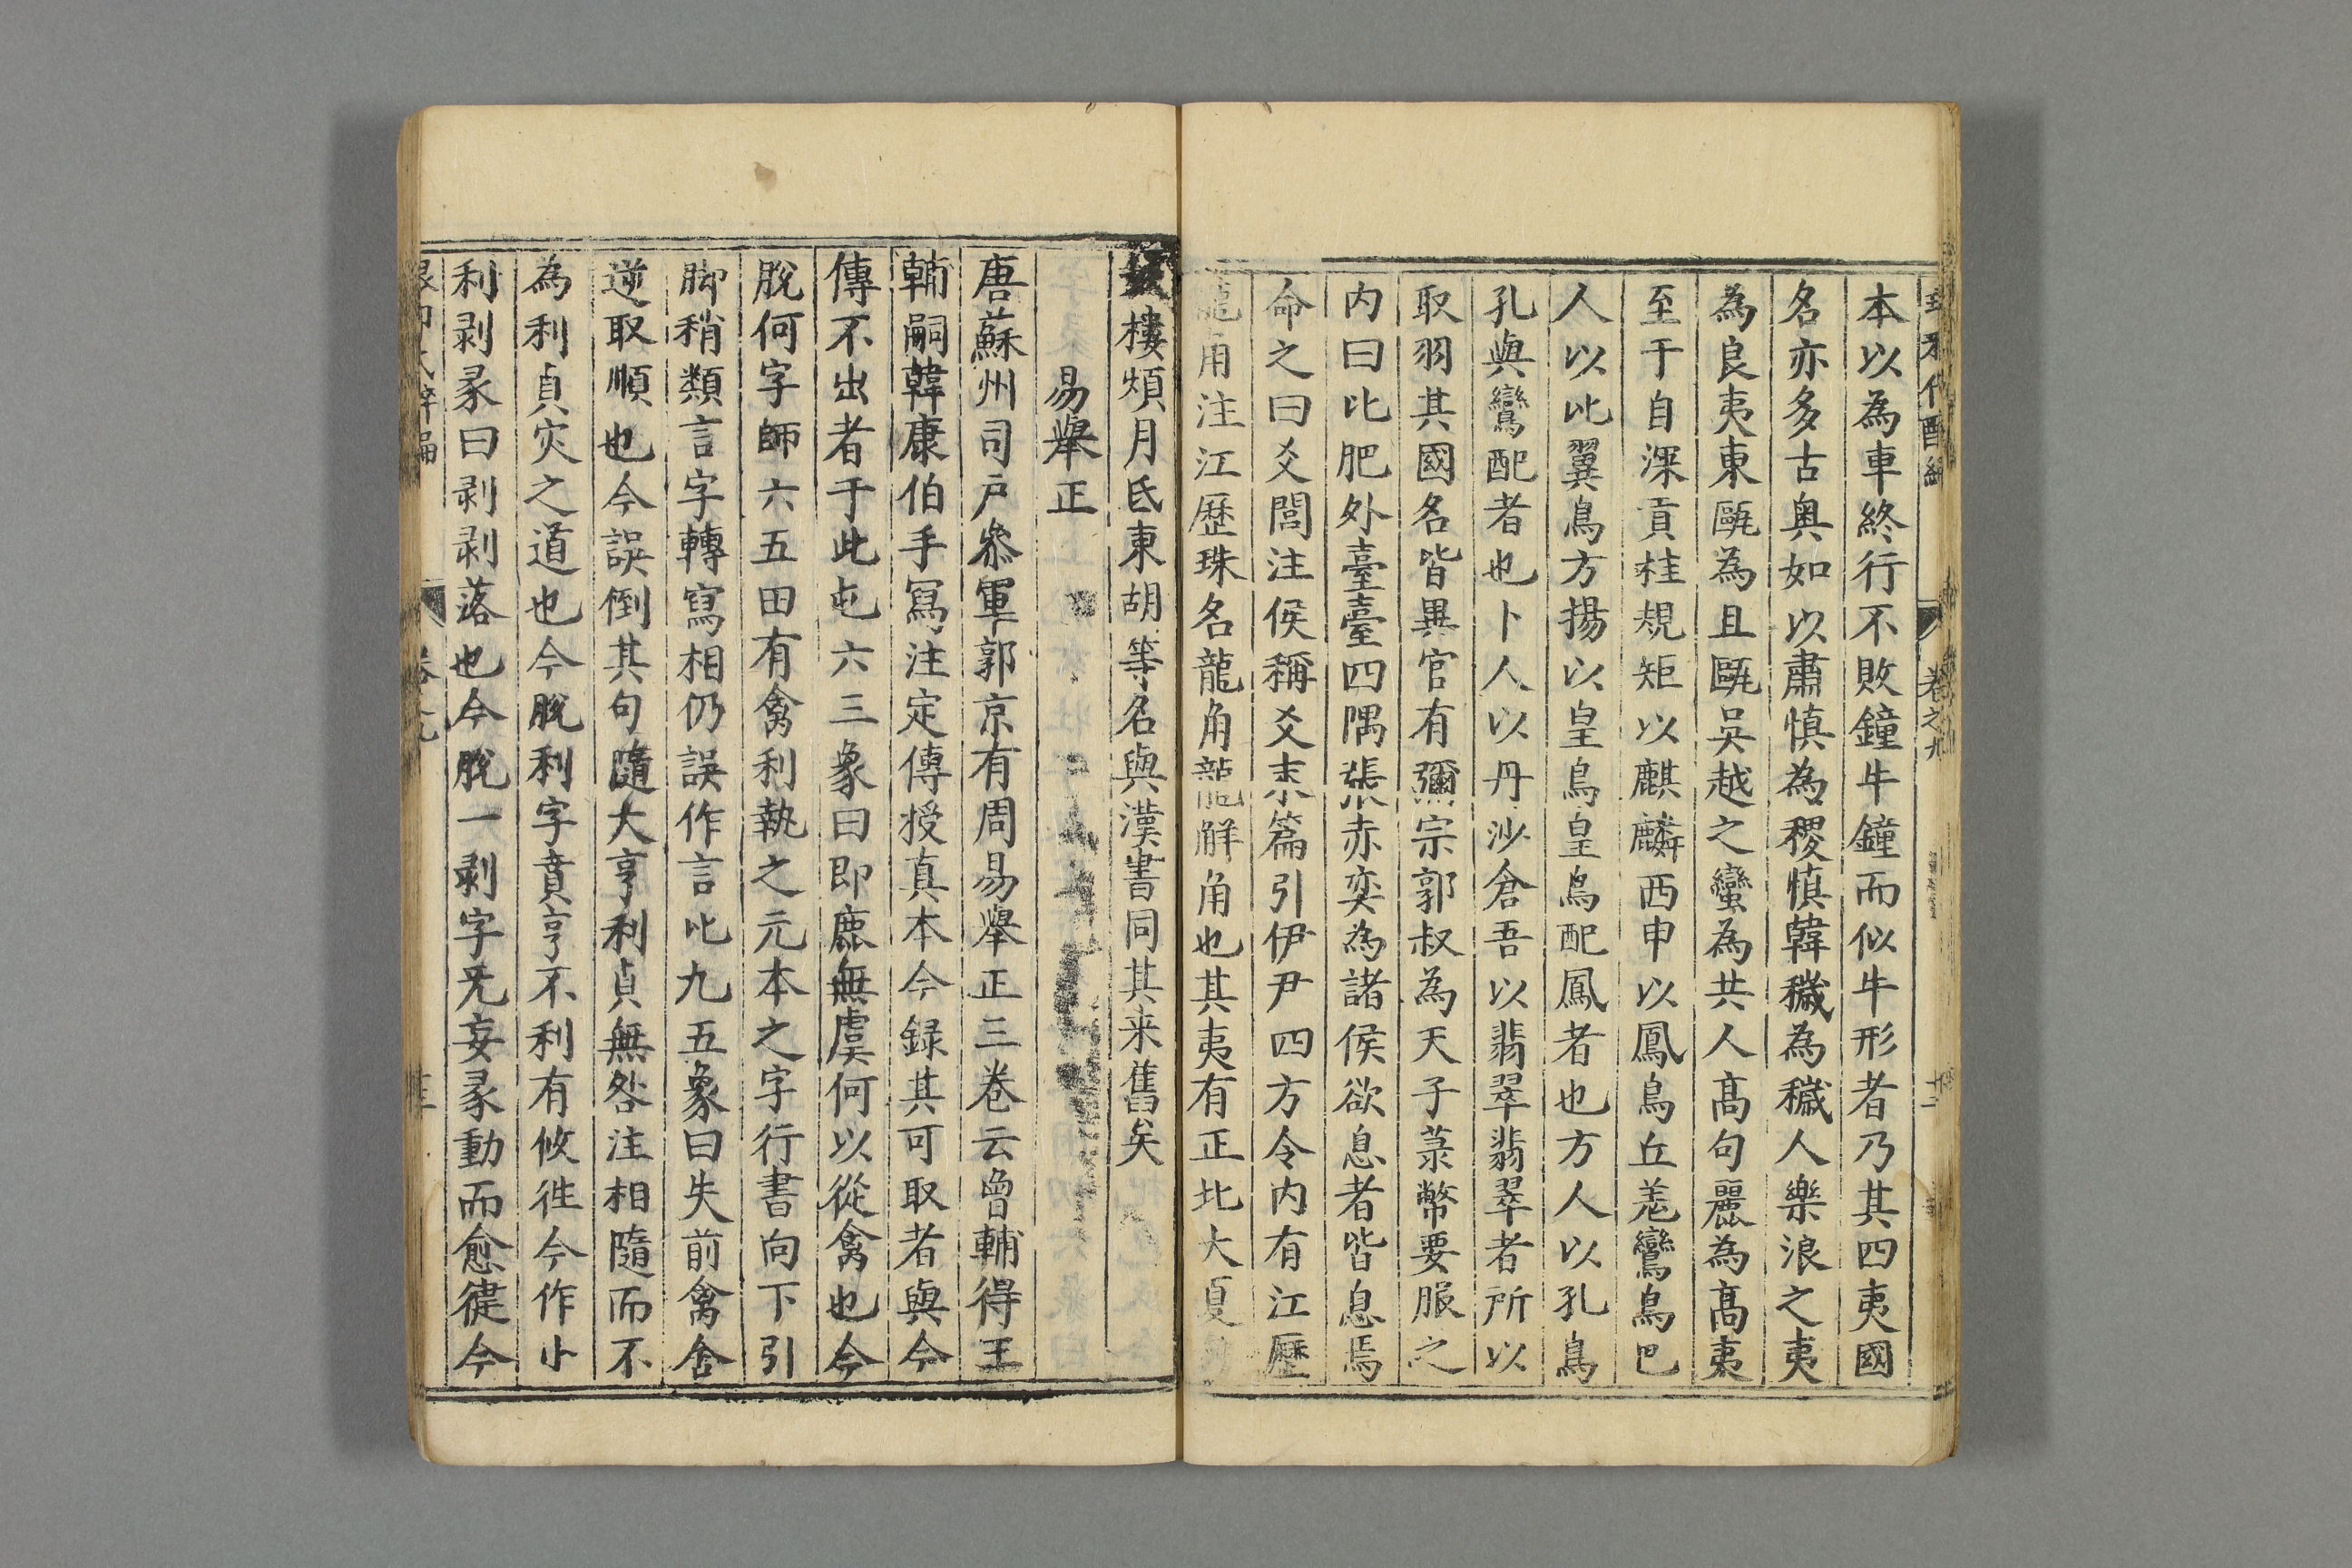 本以為車終行不敗鐘牛鐘而似牛形者乃其四夷國
名亦多古奥如以肅慎為稷慎韓穢為穢人樂浪之夷
為良夷東甌為且甌吳越之蠻為共人高句麗為高夷
至于自深貢桂規矩以麒麟西申以鳳鳥丘羌鸞鳥巴
人以比翼鳥方揚以皇鳥皇鳥配鳳者也方人以孔鳥
孔與鸞配者也卜人以丹沙倉吾以翡翠翡翠者所以
取羽其國名皆異官有彌宗郭叔為天子菉幣要服之
内曰比肥外臺臺四隅張赤奕為諸侯欲息者皆息焉
命之曰爻閭注侯稱爻末篇引伊尹四方令内有江歷
龍用注江歷珠名龍角龍觧角也其夷有正北大夏
樓煩月氐東胡等名與漢書同其来舊矣
易舉正
唐蘇州司戶叅軍郭京有周易舉正三卷云曾輔得王
輔嗣韓康伯手寫注定傳授真本今録其可取者與今
傳不出者于此屯六三象曰即鹿無虞何以從禽也今
脫何字師六五田有禽利執之元本之字行書向下引
脚稍類言字轉寫相仍誤作言比九五象曰失前禽舍
逆取順也今誤倒其句隨大亨利貞無咎注相隨而不
為利貞灾之道也今脫利字賁亨不利有攸徃今作小
利剥彖曰剥剥落也今脫一剥字旡妄彖動而愈健今